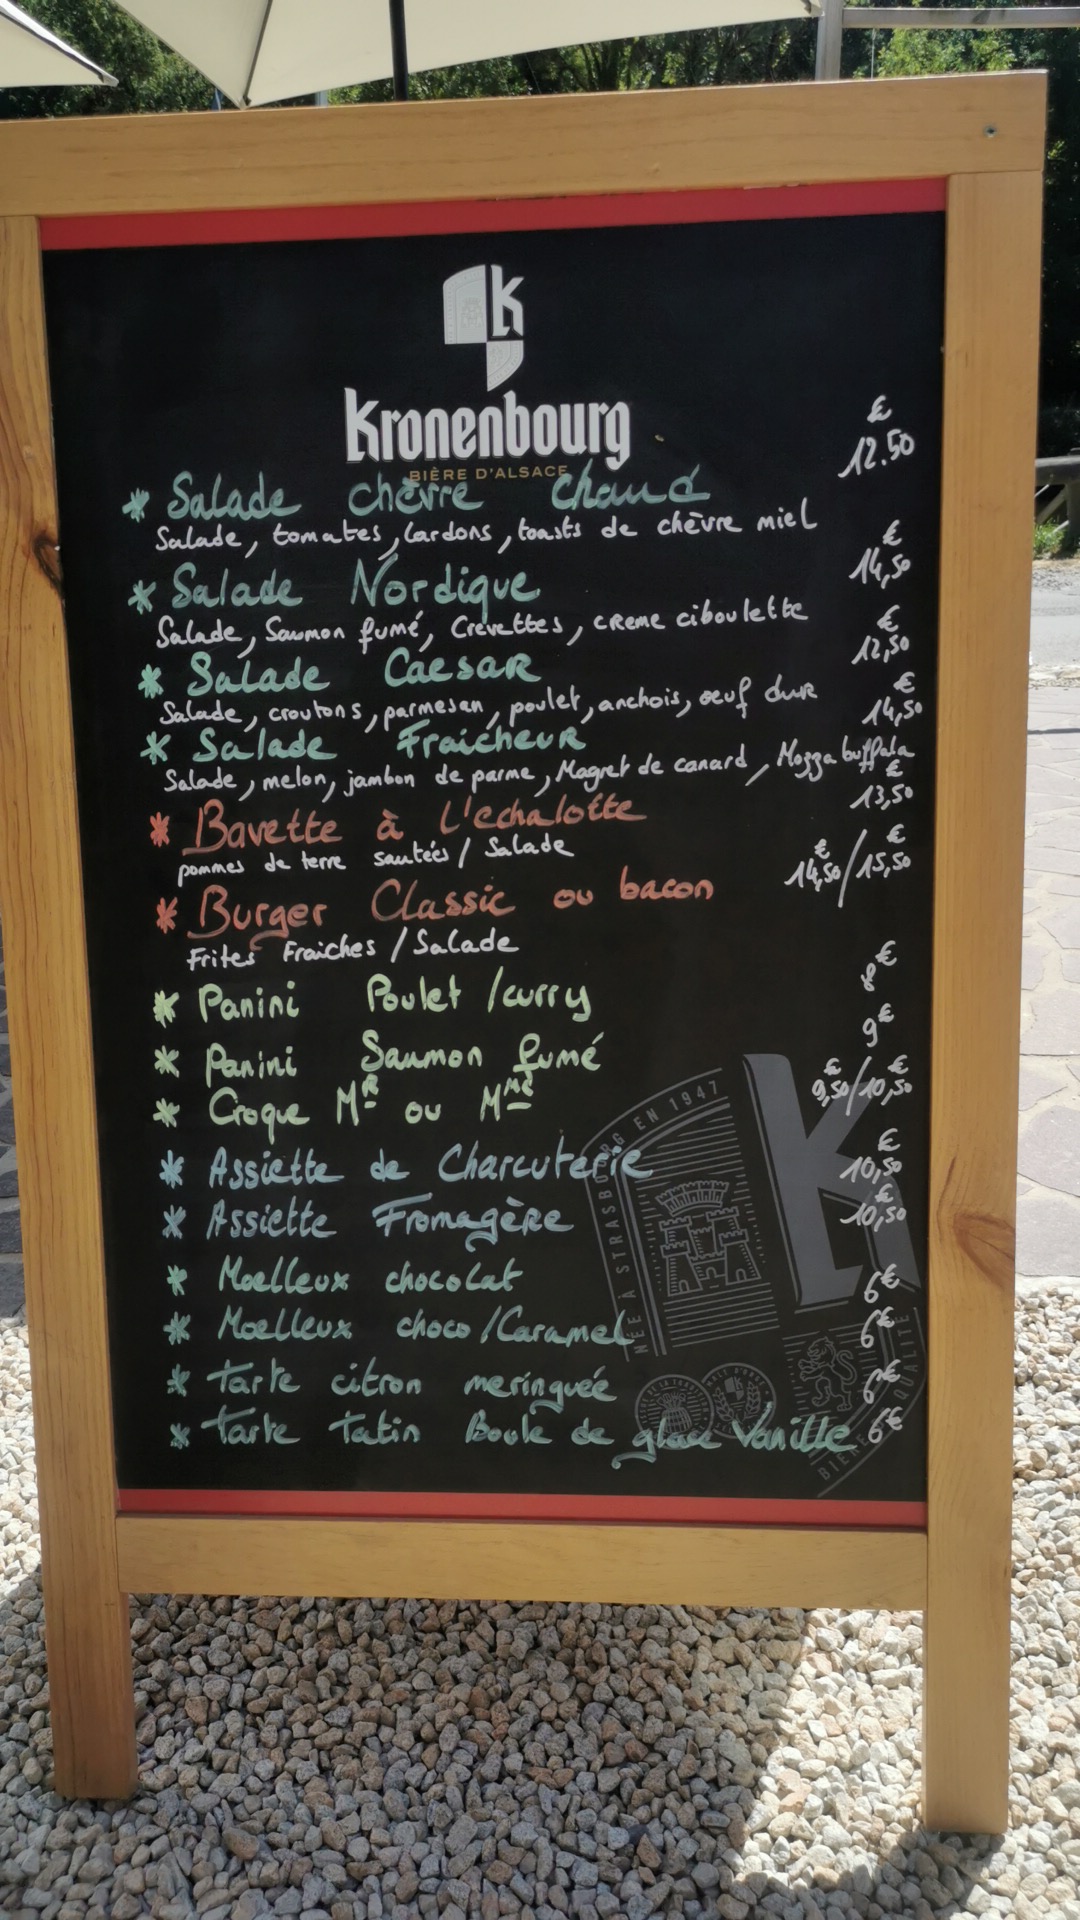 K
Kronenbourg
BIÈRE D'ALSACE
* Salade chèvre chaud 12.50 €
Salade, tomates, lardons, toasts de chèvre miel
* Salade Nordique 14,50 €
Salade, Saumon fumé, Crevettes, creme ciboulette
* Salade Caesar 12,50 €
Salade, croutons, parmesan, poulet, anchois, oeuf dur
* Salade Fraîcheur 14,50 €
Salade, melon, jambon de parme, Magret de canard, Mozza buffala
* Bavette à l'echalotte 13,50 €
pommes de terre sautées / Salade
* Burger Classic ou bacon 14,50 € / 15,50 €
Frites Fraiches / Salade
* Panini Poulet / curry 8€
* Panini Saumon fumé 9€
* Croque MR ou Mme 9,50 € / 10,50 €
* Assiette de Charcuterie 10,50 €
* Assiette Fromagère 10,50 €
* Moelleux chocolat 6€
* Moelleux choco / Caramel 6€
* Tarte citron meringuée 6€
* Tarte Tatin Boule de glace Vanille 6€
NÉE À STRASBOURG EN 1947
K